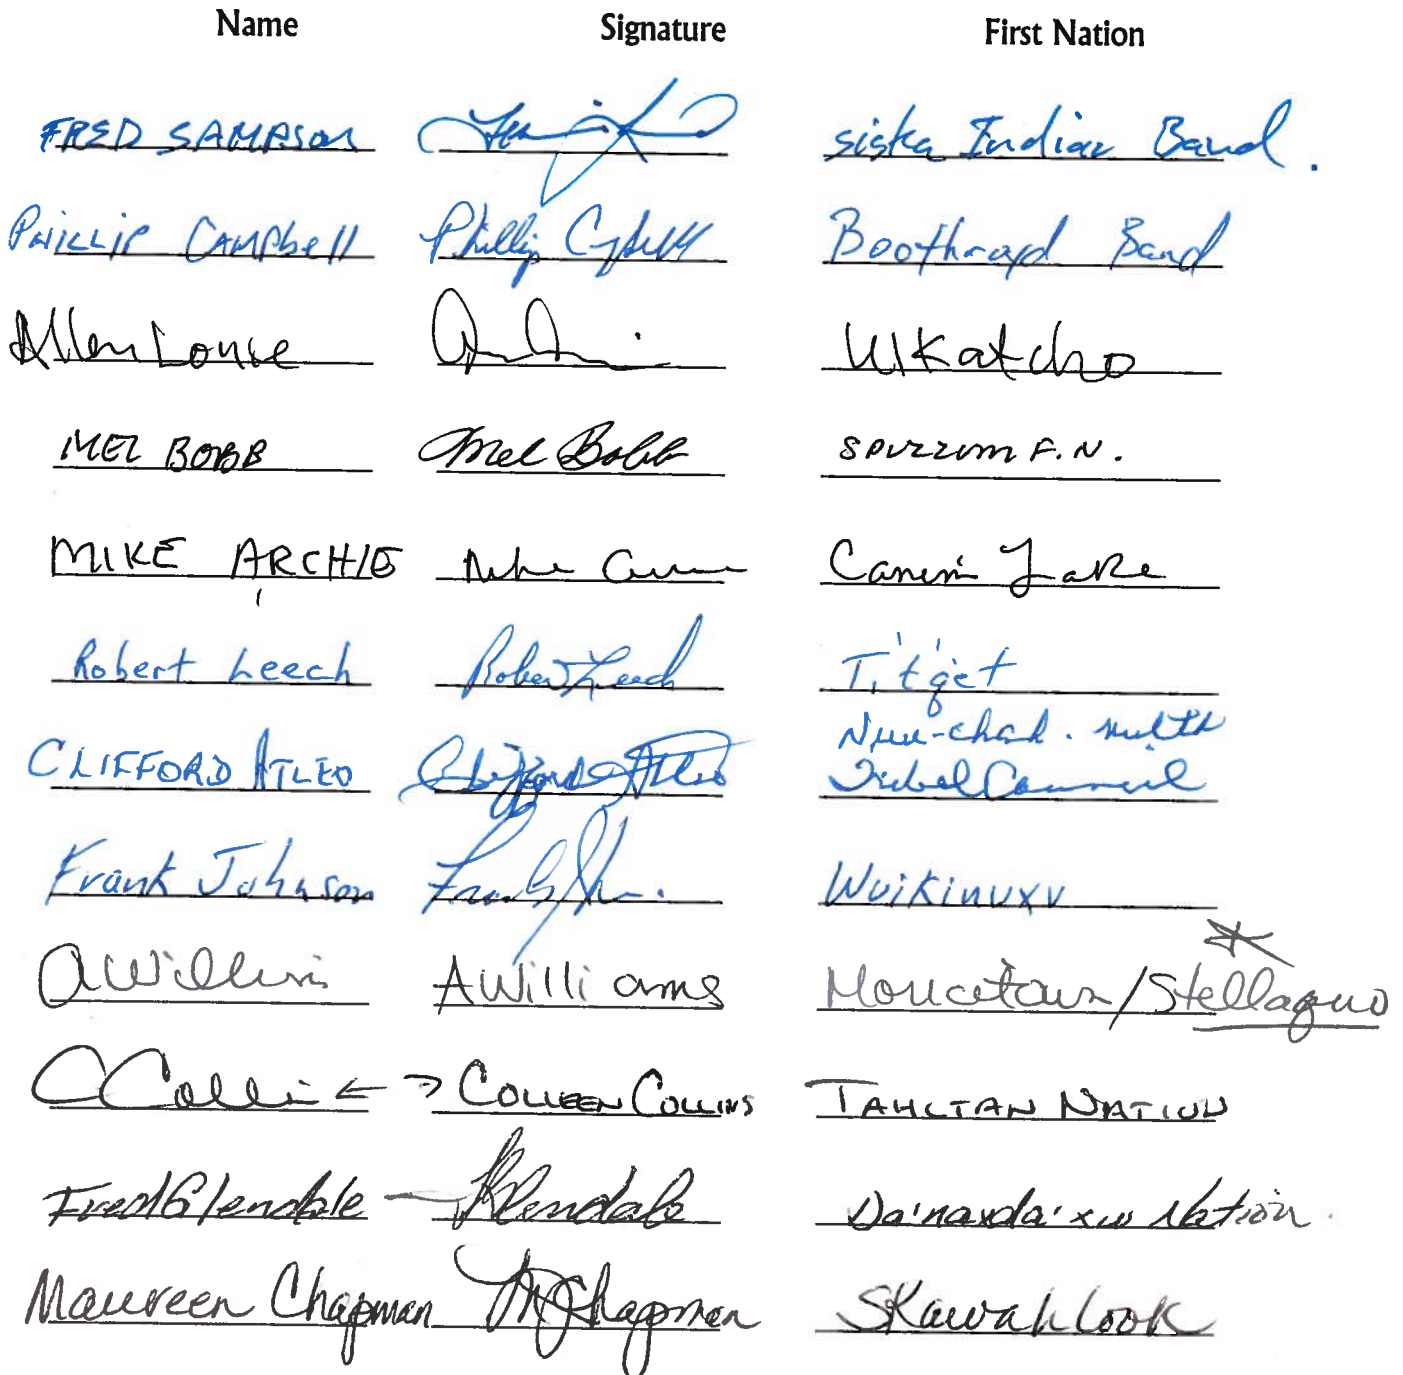 Name Signature First Nation
FRED SAMPSON siska Indian Band.
PHILLIP CAMPbell Phillip Campbell Boothroyd Band
Allen Louie Ulkatcho
MEL BOBB Mel Bobb SPUZZUM F.N.
MIKE ARCHIE Mike Canim Lake
Robert Leech Robert Leech T'it'q'et
Nuu-chah-nulth
CLIFFORD ATLEO Clifford Atleo Tribal Council
Frank Johnson Wuikinuxv
AWilliams AWilliams Moricetown/Stellaquo
CCollins ← → COLLEEN COLLINS TAHLTAN NATION
Fred Glendale — Glendale Da'naxda'xw Nation
Maureen Chapman MChapman SKawahlook